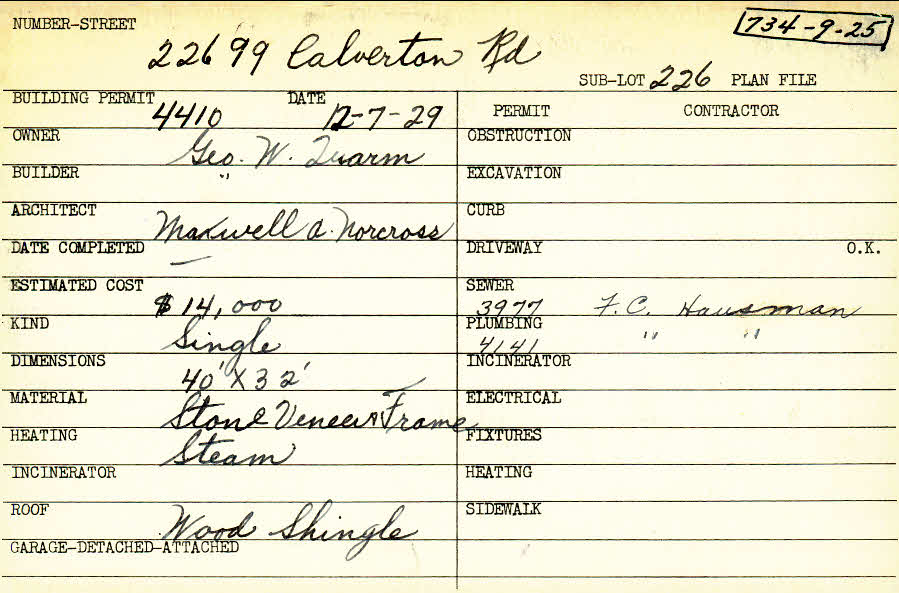 NUMBER-STREET
734-9-25
22699 Calverton Rd
SUB-LOT 226 PLAN FILE
BUILDING PERMIT 4410 DATE 12-7-29
OWNER Geo. W. Quarm
BUILDER "
ARCHITECT Maxwell A. Norcross
DATE COMPLETED —
ESTIMATED COST $14,000
KIND Single
DIMENSIONS 40' X 32'
MATERIAL Stone Veneer & Frame
HEATING Steam
INCINERATOR
ROOF Wood Shingle
GARAGE-DETACHED-ATTACHED
PERMIT CONTRACTOR
OBSTRUCTION
EXCAVATION
CURB
DRIVEWAY O.K.
SEWER 3977 F.C. Hausman
PLUMBING 4141 " "
INCINERATOR
ELECTRICAL
FIXTURES
HEATING
SIDEWALK